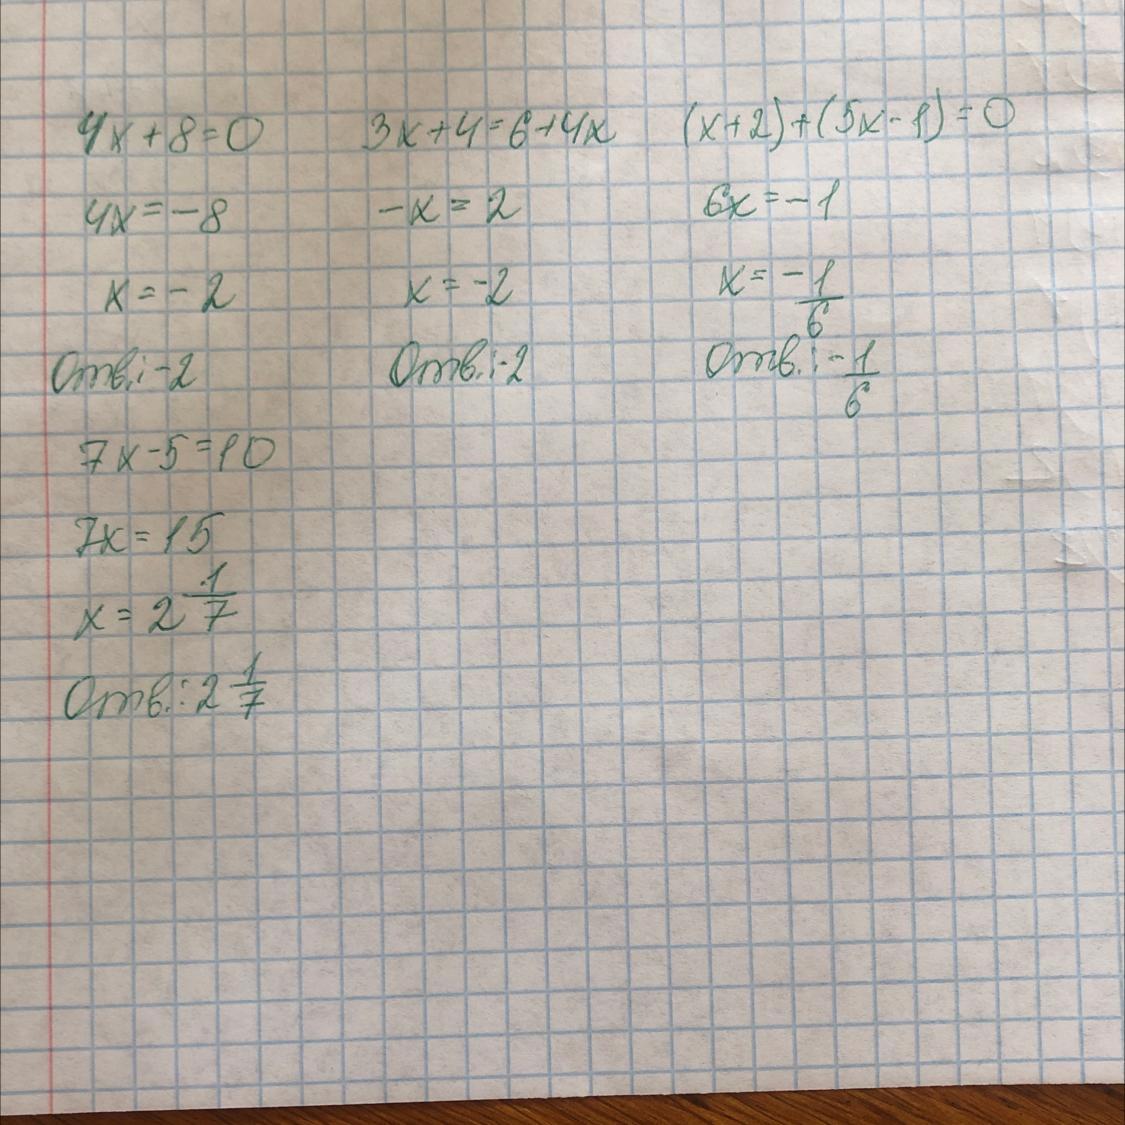 4x+8=0
4x=-8
x=-2
Отв.: -2
3x+4=6+4x
-x=2
x=-2
Отв.: -2
(x+2)+(5x-1)=0
6x=-1
x=-1/6
Отв.: -1/6
7x-5=10
7x=15
x=2 1/7
Отв.: 2 1/7